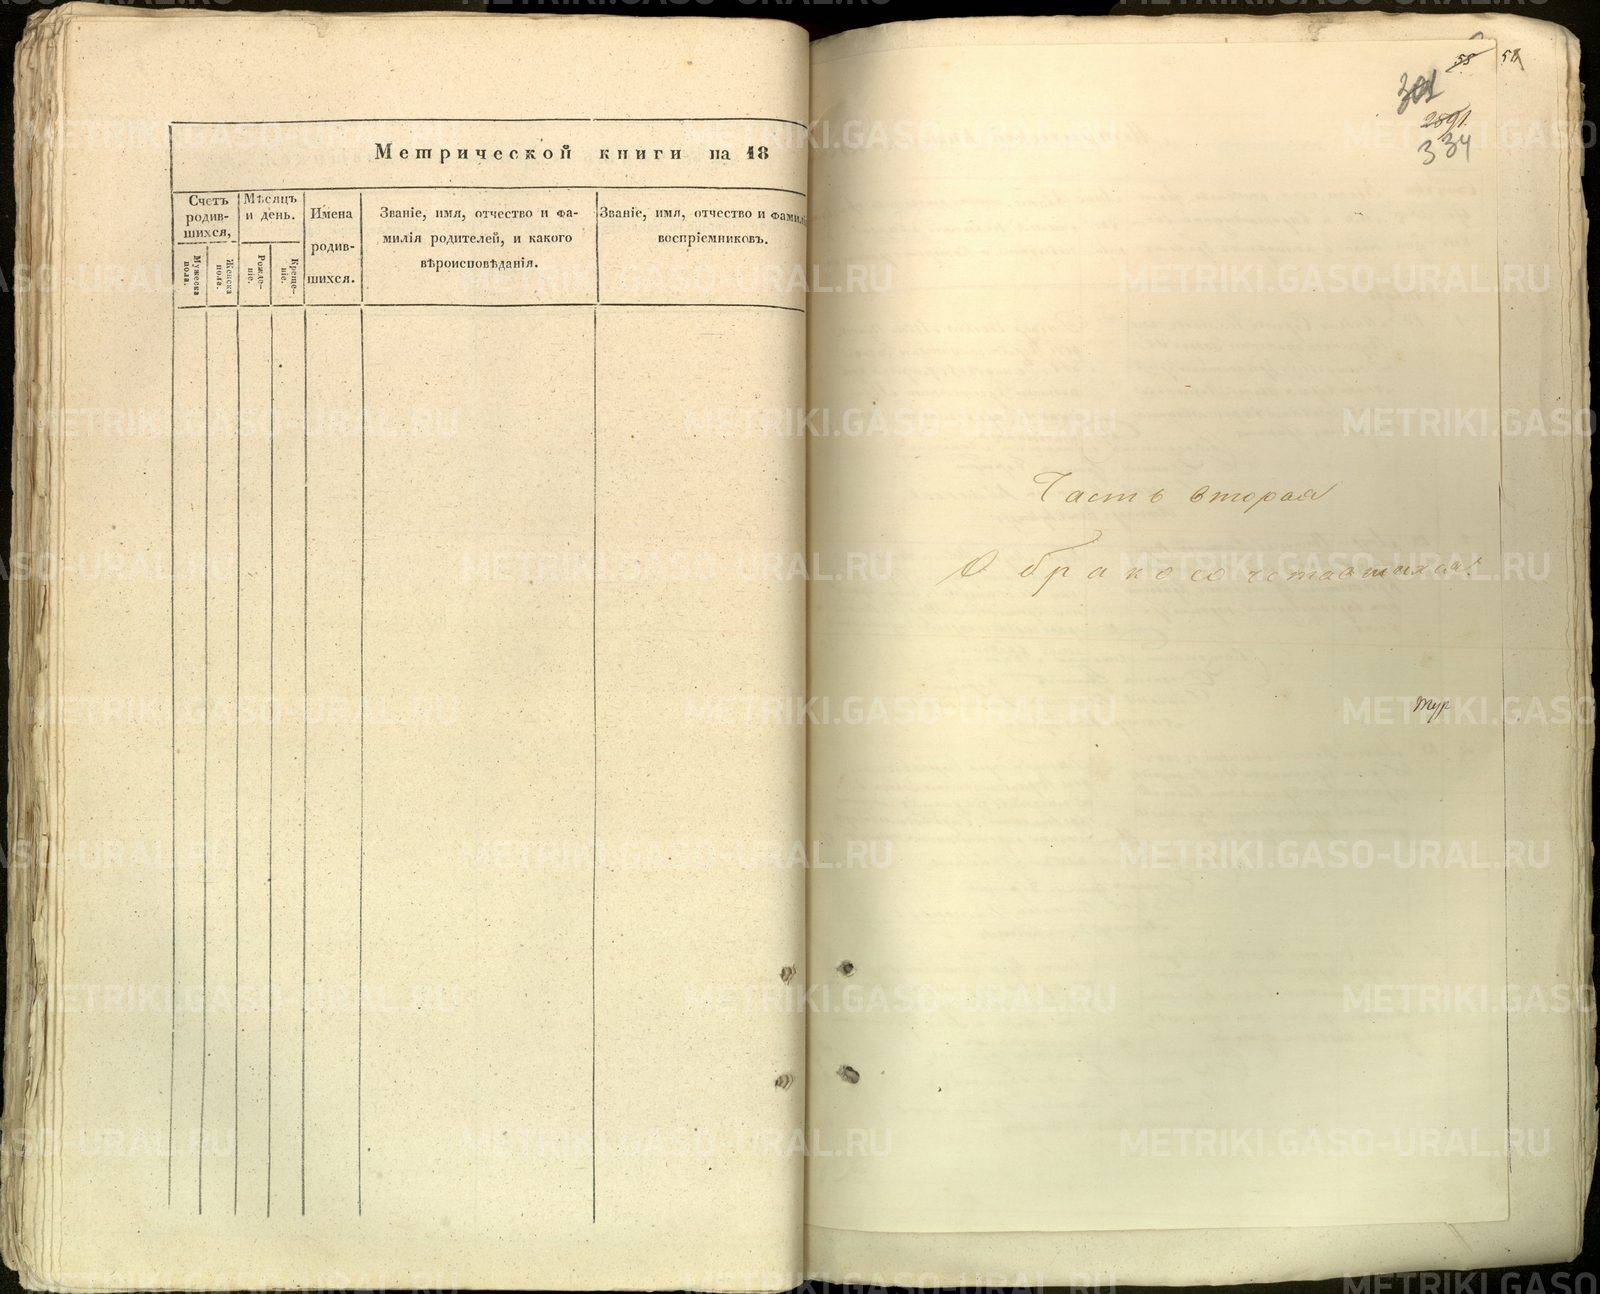 Метрической книги на 18
Счетъ
родив-
шихся,
Мужеска
пола.
Женска
пола.
Мѣсяцъ
и день.
Рожде-
ніе.
Креще-
ніе.
Имена
родив-
шихся.
Званіе, имя, отчество и фа-
милія родителей, и какого
вѣроисповѣданія.
Званіе, имя, отчество и фамилі
воспріемниковъ.
58
58
301
2891
334
Часть вторая
О бракосочетавшихся
METRIKI.GASO-URAL.RU